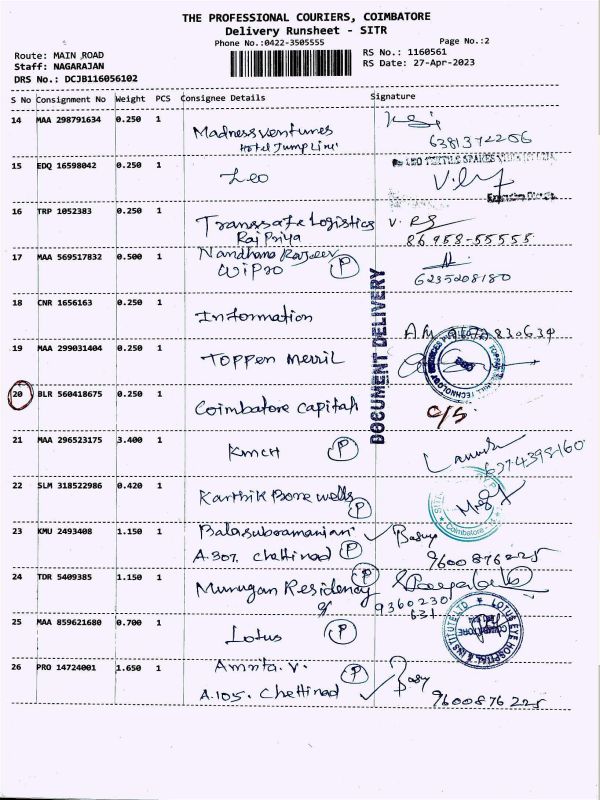 THE PROFESSIONAL COURIERS, COIMBATORE
Delivery Runsheet - SITR
Phone No.:0422-3505555
Page No.:2
Route: MAIN ROAD
RS No.: 1160561
Staff: NAGARAJAN
RS Date: 27-Apr-2023
DRS No.: DCJB116056102
S No Consignment No Weight PCS Consignee Details Signature
14 MAA 298791634 0.250 1
Madness Ventures
Hotel Jump Line
6381372206
15 EDQ 16598042 0.250 1
Leo
16 TRP 1052383 0.250 1
Transsafe Logistics
Raj Priya
86958-55555
17 MAA 569517832 0.500 1
Nandhana Rajeev
Wipro P
6235208180
DOCUMENT DELIVERY
18 CNR 1656163 0.250 1
Information
19 MAA 299031404 0.250 1
Toppen Merril
20 BLR 560418675 0.250 1
Coimbatore Capitah
C/S.
21 MAA 296523175 3.400 1
KMCH P
6374398160
22 SLM 318522986 0.420 1
Karthik Bore wells P
Coimbatore
23 KMU 2493408 1.150 1
Balasubramanian
A.307. Chettinad P
9600876225
24 TDR 5409385 1.150 1
Murugan Residency P
9360230
631
25 MAA 859621680 0.700 1
Lotus P
LOTUS EYE HOSPITAL & INSTITUTE LTD
26 PRO 14724001 1.650 1
Amrita. V. P
A.105. Chettinad
9600876225